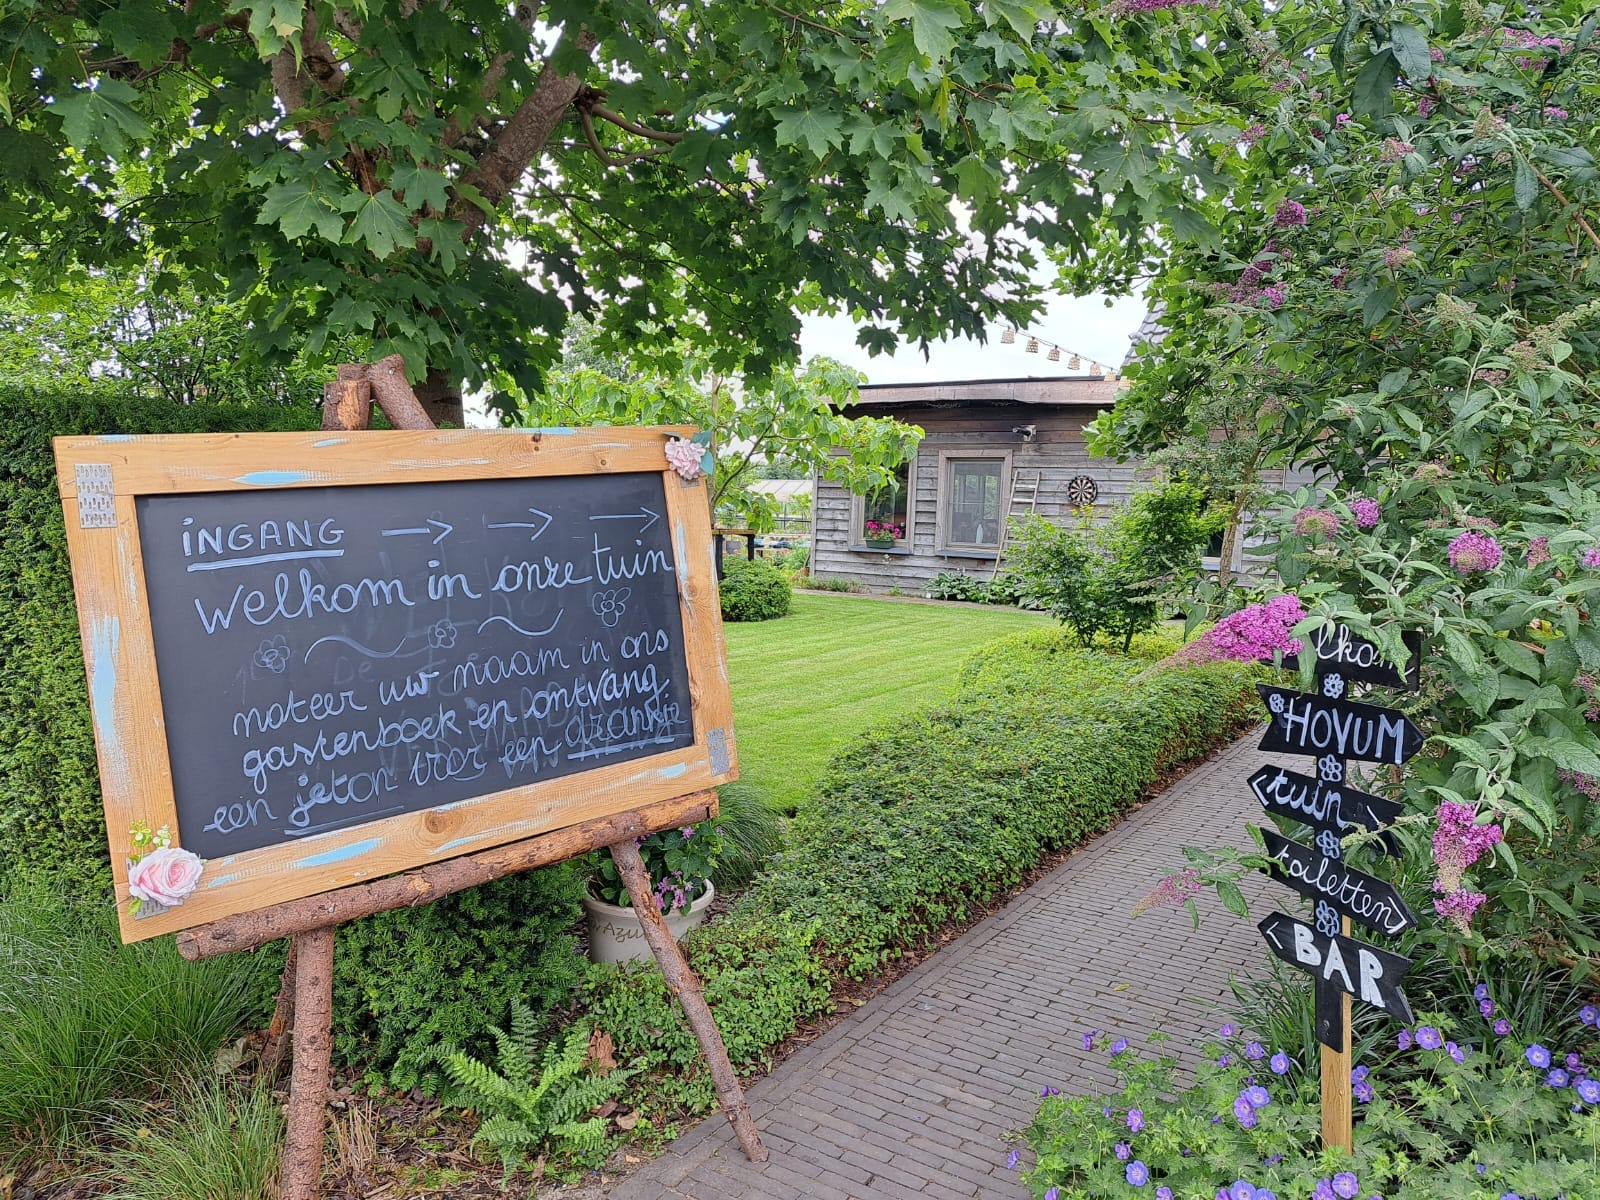 iNGANG → → →
Welkom in onze tuin
noteer uw naam in ons
gastenboek en ontvang
een jeton voor een drankje
lko
HOVUM
tuin
toiletten
BAR